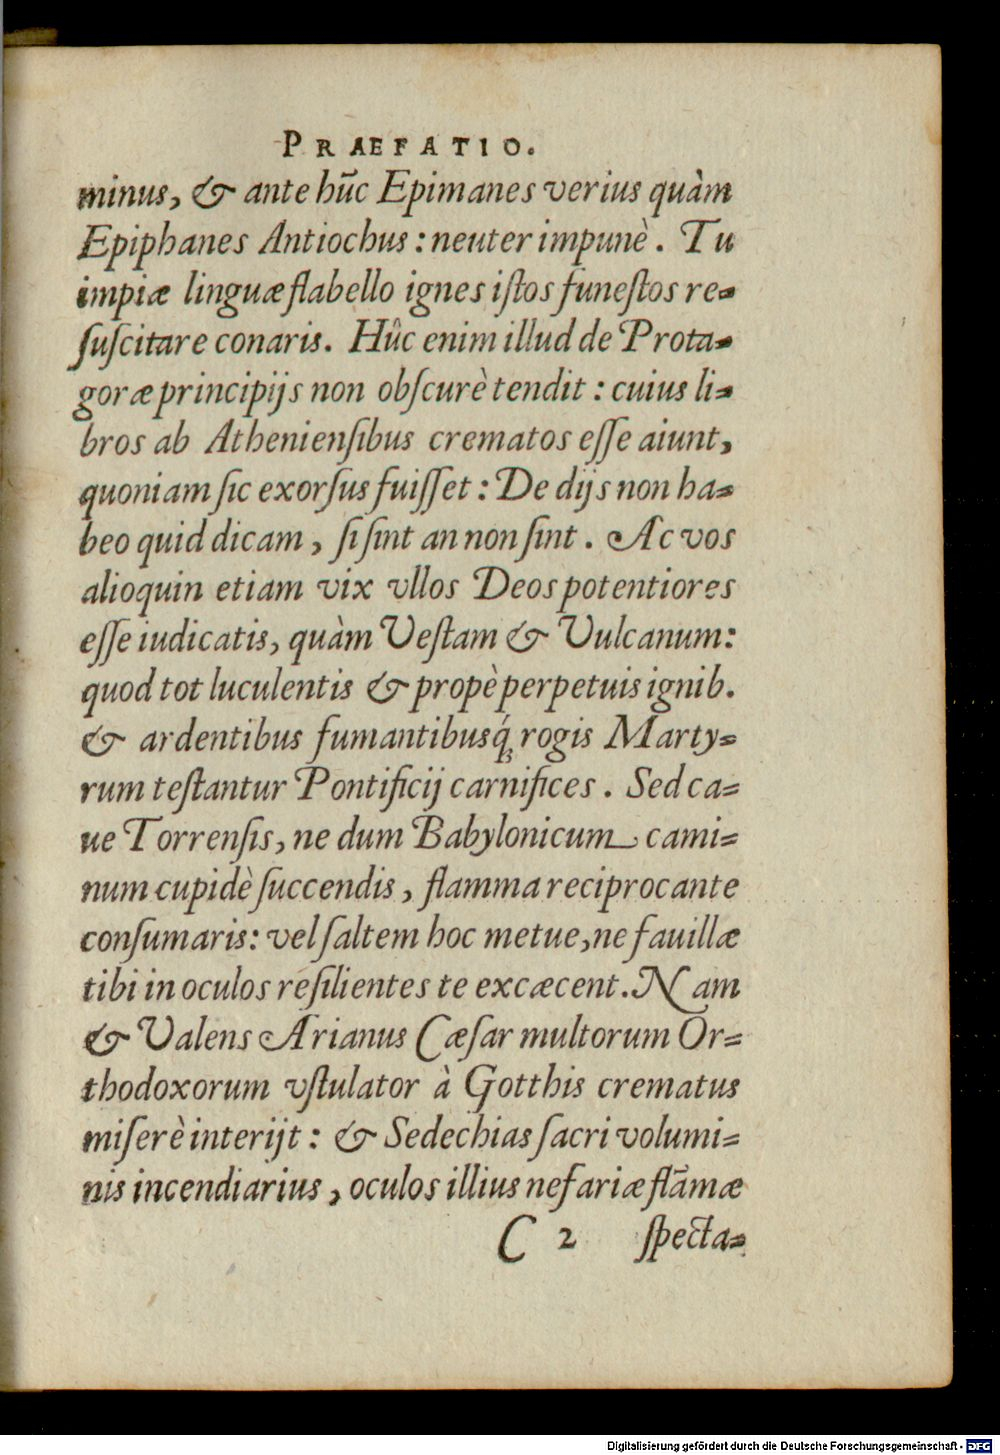 PRAEFATIO.
minus, & ante hũc Epimanes verius quàm
Epiphanes Antiochus: neuter impunè. Tu
impiæ linguæ flabello ignes iſtos funeſtos re-
ſuſcitare conaris. Hûc enim illud de Prota-
goræ principijs non obſcurè tendit: cuius li-
bros ab Athenienſibus crematos eſſe aiunt,
quoniam ſic exorſus fuiſſet: De dijs non ha-
beo quid dicam, ſi ſint an non ſint. Ac vos
alioquin etiam vix vllos Deos potentiores
eſſe iudicatis, quàm Veſtam & Vulcanum:
quod tot luculentis & propè perpetuis ignib.
& ardentibus fumantibusq́ꝫ rogis Marty-
rum teſtantur Pontificij carnifices. Sed ca-
ue Torrenſis, ne dum Babylonicum cami-
num cupidè ſuccendis, flamma reciprocante
conſumaris: vel ſaltem hoc metue, ne fauillæ
tibi in oculos reſilientes te excæcent. Nam
& Valens Arianus Cæſar multorum Or-
thodoxorum vſtulator à Gotthis crematus
miſerè interijt: & Sedechias ſacri volumi-
nis incendiarius, oculos illius nefariæ flãmæ
C 2 ſpecta-
Digitalisierung gefördert durch die Deutsche Forschungsgemeinschaft - DFG